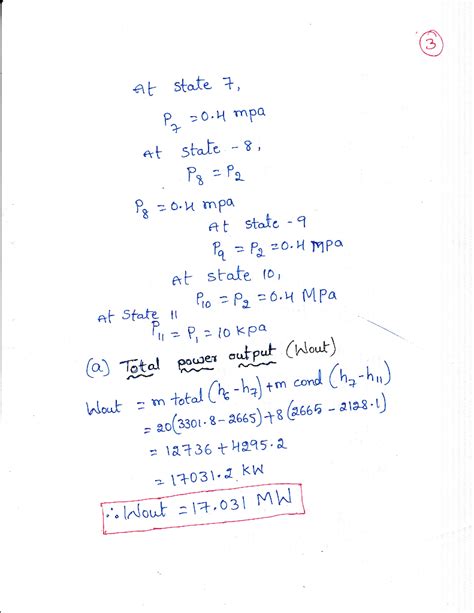 3
At state 7,
P₇ = 0.4 mpa
At state - 8,
P₈ = P₂
P₈ = 0.4 mpa
At state - 9
P₉ = P₂ = 0.4 MPa
At state 10,
P₁₀ = P₂ = 0.4 MPa
At State 11
P₁₁ = P₁ = 10 kpa
(a) Total power output (Wout)
Wout = m total (h₆ - h₇) + m cond (h₇ - h₁₁)
= 20(3301.8 - 2665) + 8(2665 - 2128.1)
= 12736 + 4295.2
= 17031.2 KW
∴ Wout = 17.031 MW